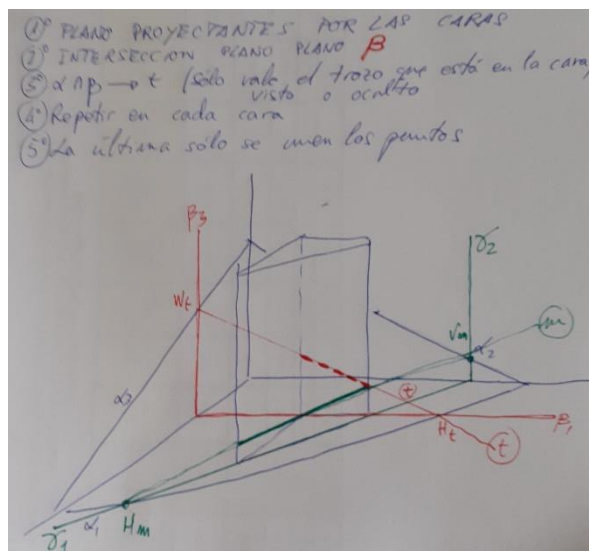 1º PLANO PROYECTANTES POR LAS CARAS
2º INTERSECCION PLANO PLANO β
3º α∩β → t (sólo vale el trozo que está en la cara,
visto o oculto
4º Repetir en cada cara
5º La última sólo se unen los puntos
β3
γ2
Wt
Vm
m
α2
α3
t
Ht
β1
t
Hm
α1
γ1